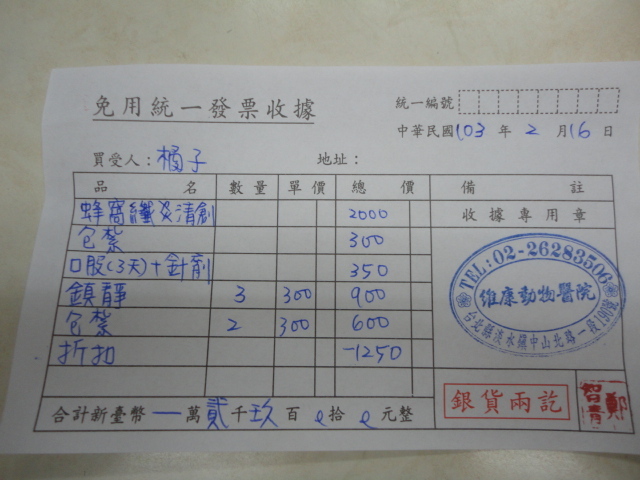 免用統一發票收據
統一編號
中華民國103年2月16日
買受人：橘子 地址：
品名 數量 單價 總價 備註
蜂窩纖及清創 2000 收據專用章
包紮 300
口服(3天)+針劑 350
鎮靜 3 300 900
包紮 2 300 600
折扣 -1250
TEL:02-26283506
維康動物醫院
台北縣淡水鎮中山北路一段190號
銀貨兩訖
鄭智青
合計新臺幣一萬貳千玖百0拾0元整